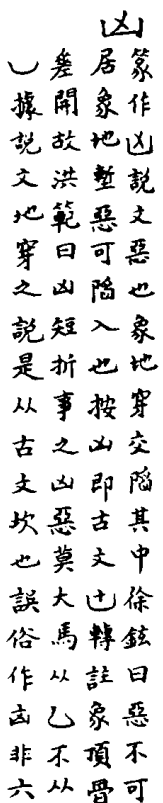 凶
篆作凶說文惡也象地穿交陷其中徐鉉曰惡不可
居象地塹惡可陷入也按凶即古文轉註象頂骨
差開故洪範曰凶短折事之凶惡莫大焉从乚不从
凵據說文地穿之說是从古文坎也誤俗作㐫非六